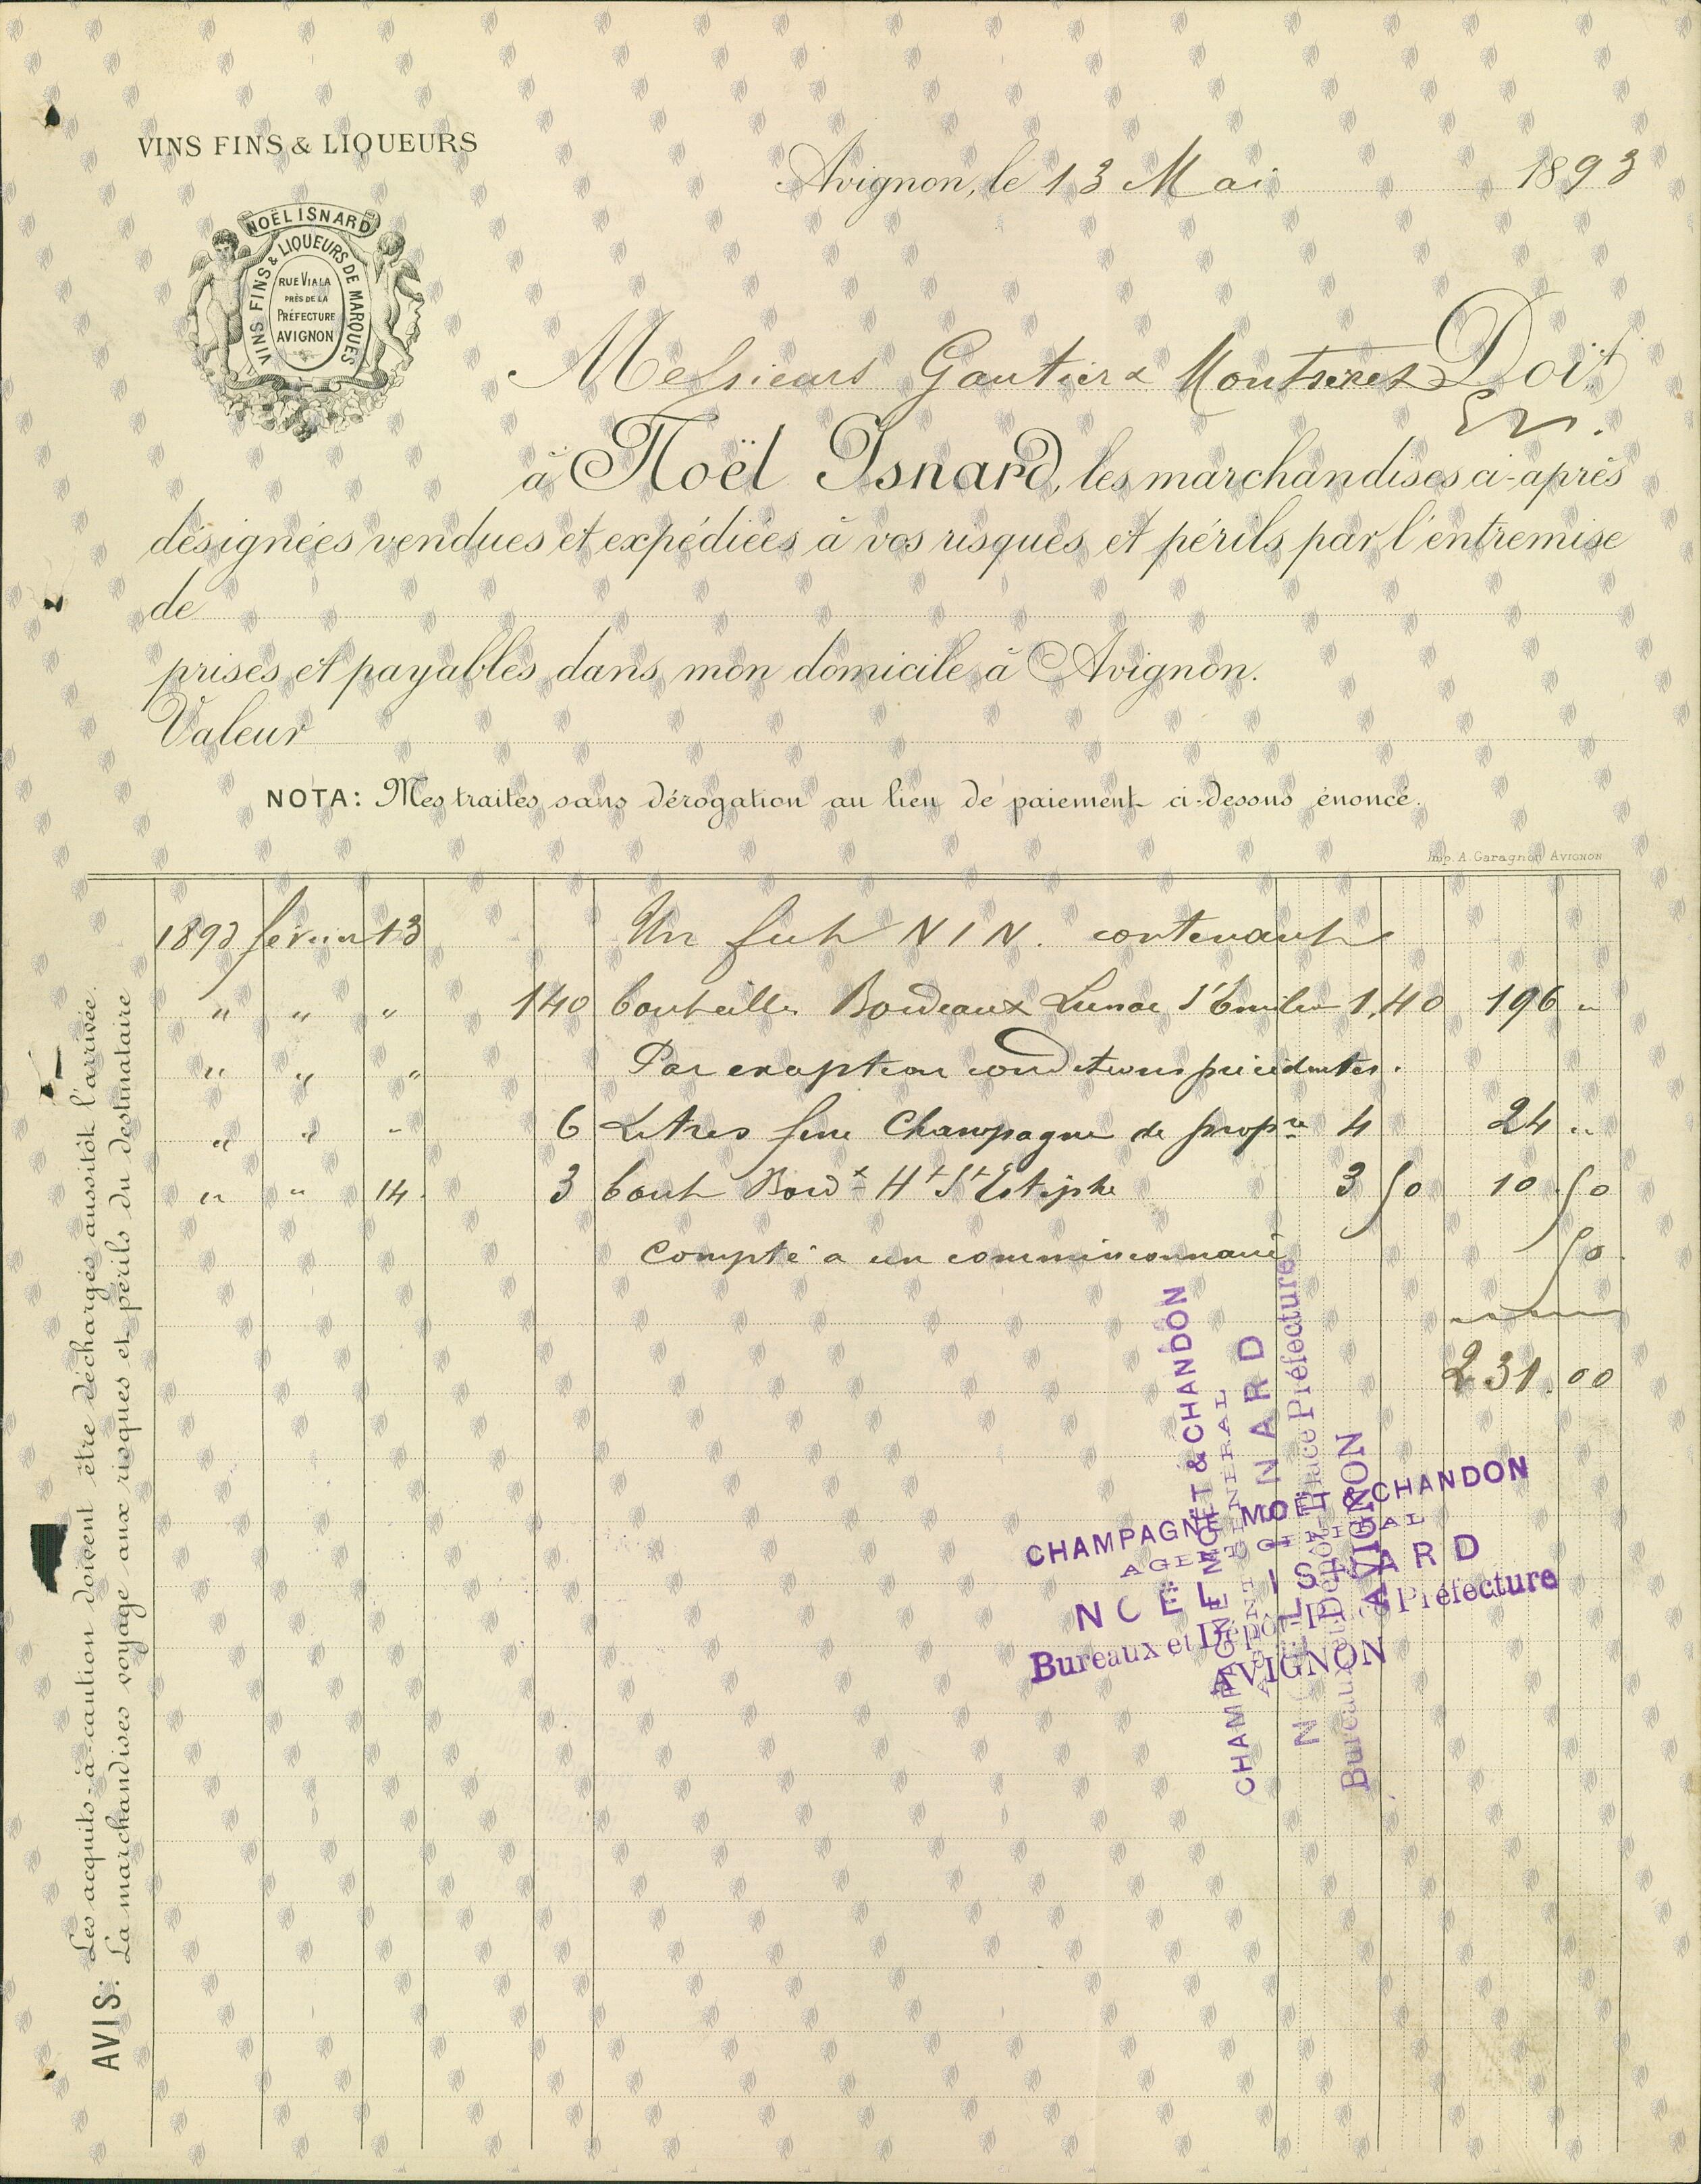 VINS FINS & LIQUEURS
NOËL ISNARD
VINS FINS & LIQUEURS DE MARQUES
RUE VIALA
PRÈS DE LA
PRÉFECTURE
AVIGNON
Avignon, le 13 Mai 1893
Messieurs Gautier & Doit
à Noël Isnard, les marchandises ci-après
désignées vendues et expédiées à vos risques et périls par l'entremise
de
prises et payables dans mon domicile à Avignon.
Valeur
NOTA: Mes traites sans dérogation au lieu de paiement ci-dessus énoncé.
Imp. A. Garagnon AVIGNON
1893 février 13 Un fut N I N. contenant
" " " 140 bouteilles Bordeaux S' Emilion 1,40 196 "
" " " Par exception conditions précédentes.
" " " 6 Litres fine Champagne de propre 4 24 "
" " 14. 3 bout Bordx Ht St Estèphe 3 50 10 50
Compté a un commissionnaire 50
231.00
CHAMPAGNE MOËT & CHANDON
AGENT GÉNÉRAL
NOËL ISNARD
Bureaux et Dépôt, Place Préfecture
AVIGNON
CHAMPAGNE MOËT & CHANDON
AGENT GÉNÉRAL
NOËL ISNARD
Bureaux et Dépôt, Place Préfecture
AVIGNON
AVIS: Les acquits-à-caution doivent être déchargés aussitôt l'arrivée.
La marchandises voyage aux risques et périls du destinataire